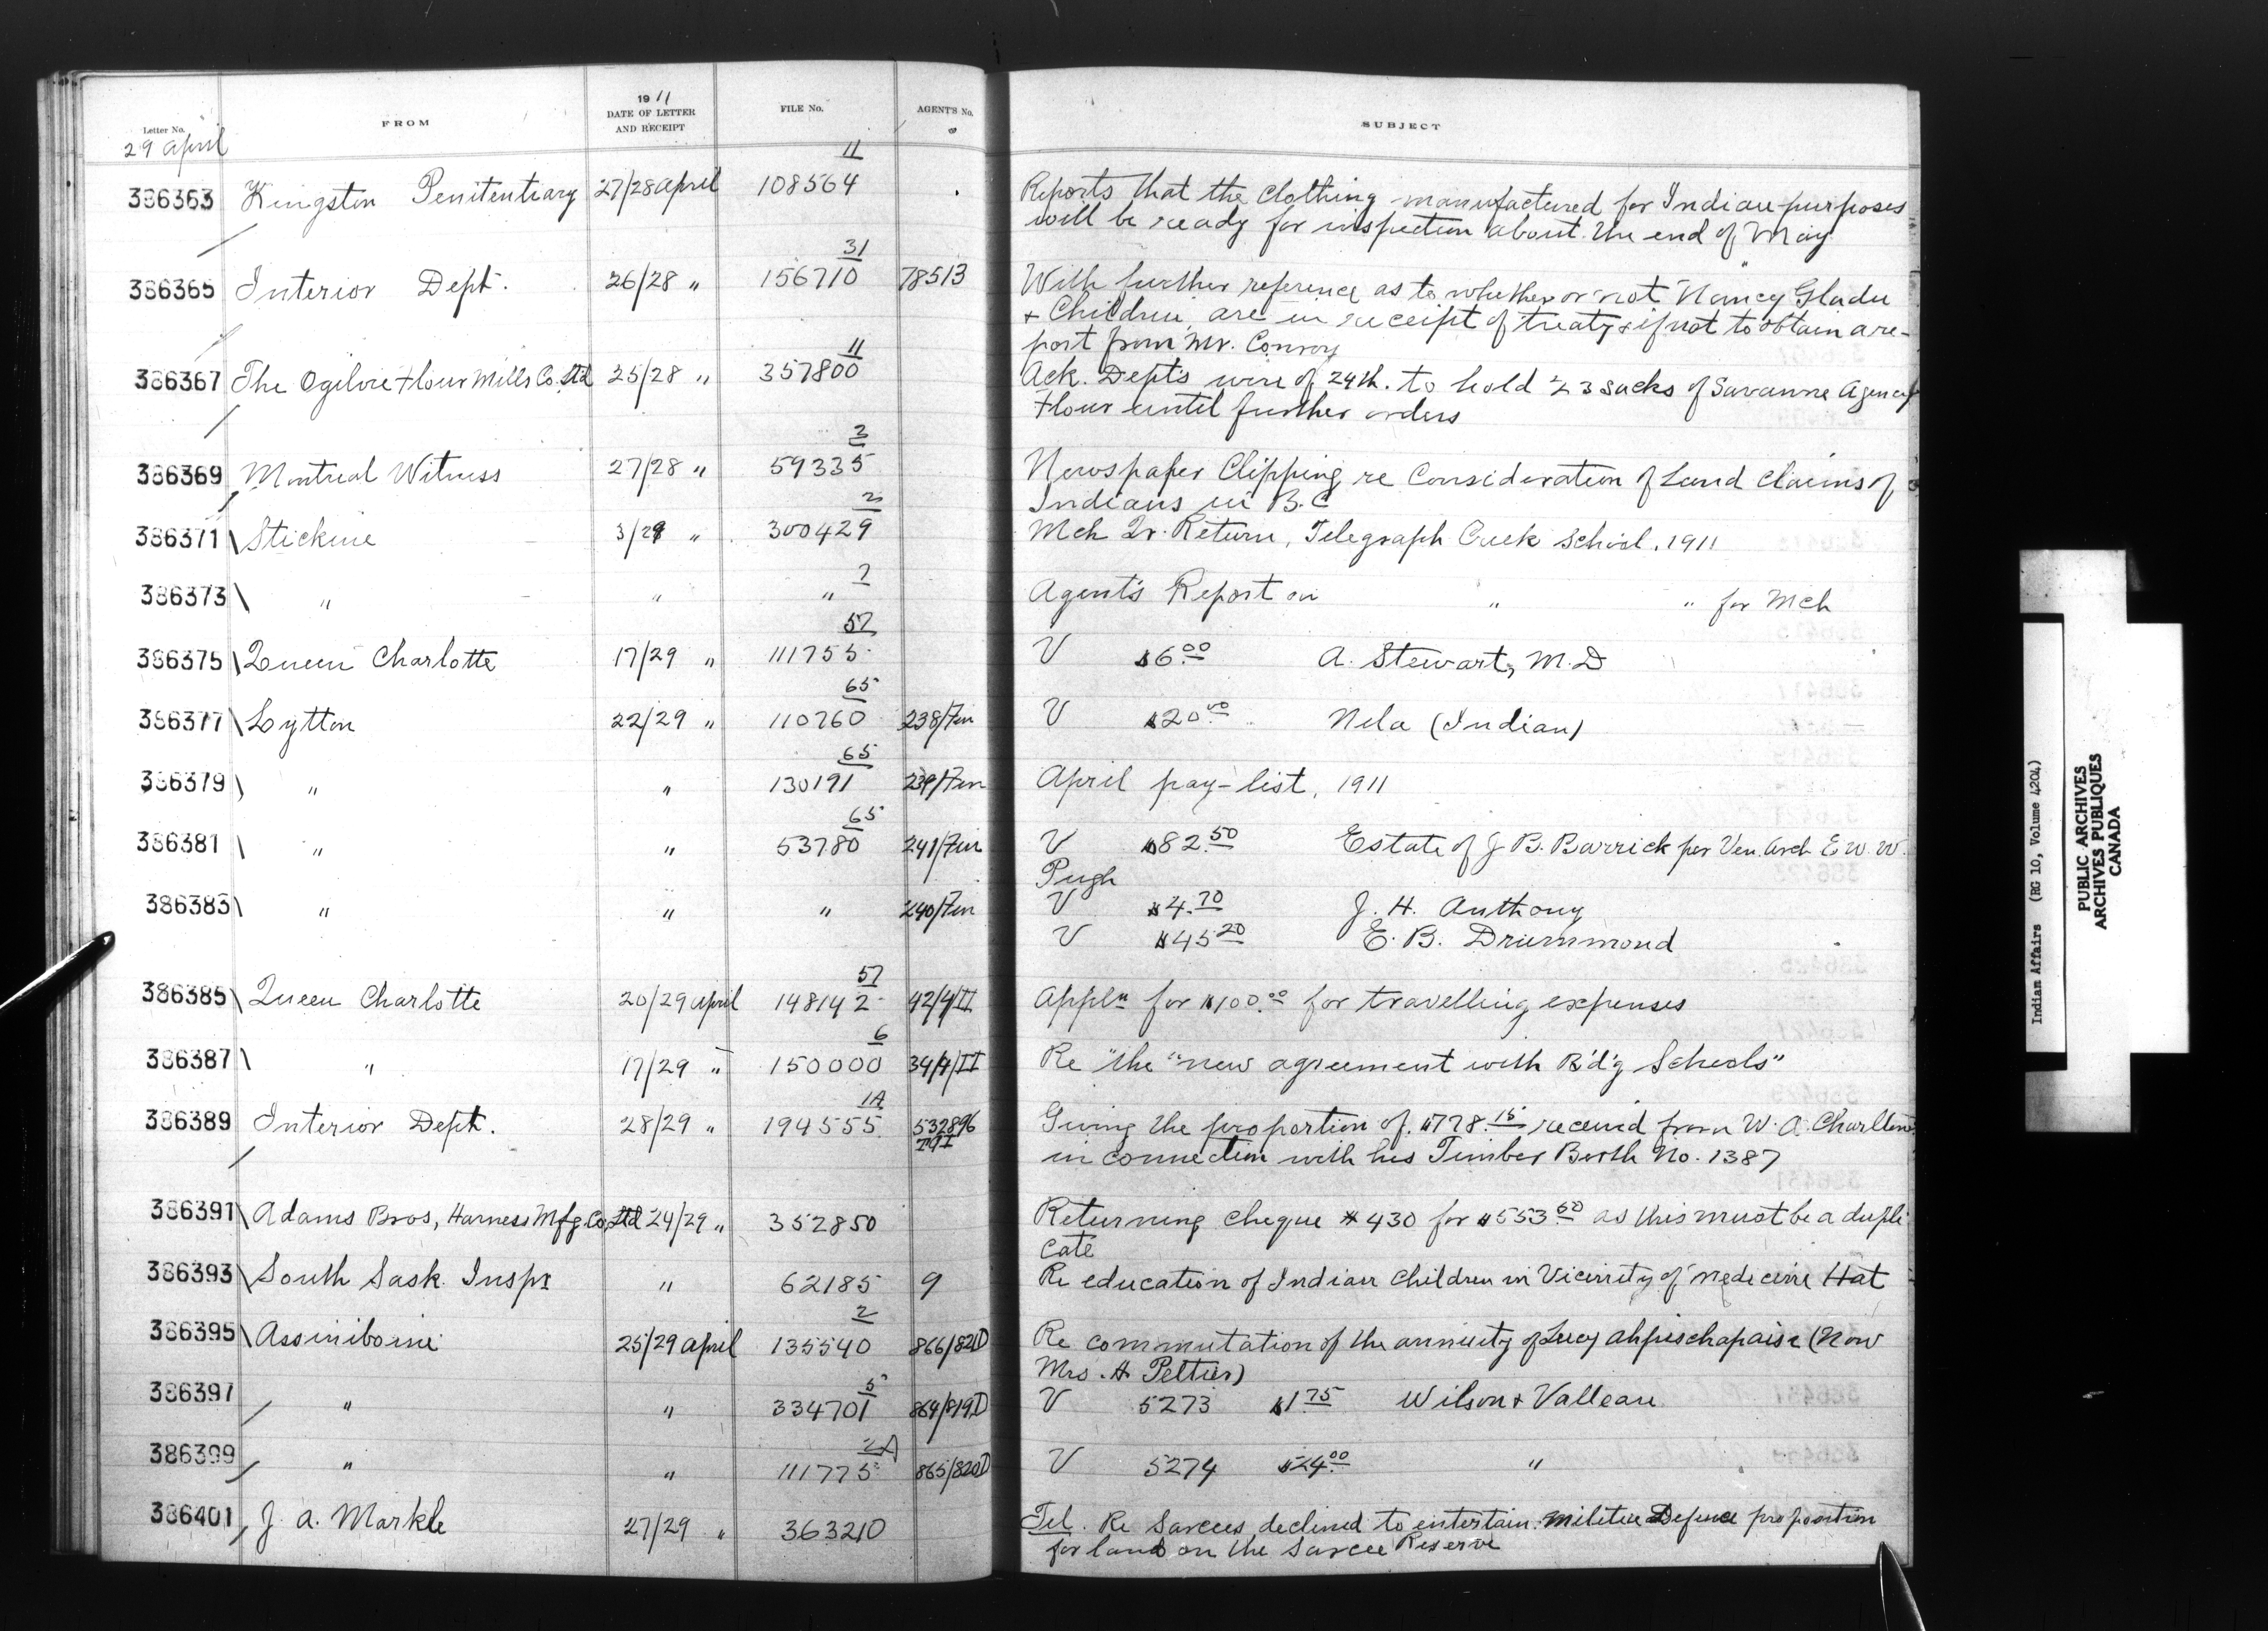 Letter No.
FROM
1911
DATE OF LETTER
AND RECEIPT
FILE No.
AGENT'S No.
SUBJECT
29 April
11
386363 Kingston Penitentiary 27/28 April 108564 Reports that the Clothing manufactured for Indian purposes
will be ready for inspection about the end of May
31
386365 Interior Dept. 26/28 " 156710 78513 With further reference as to whether or not Nancy Gladu
+ Children are in receipt of treaty & if not to obtain a re-
port from Mr. Conroy
11
386367 The Ogilvie Flour Mills Co. Ltd 25/28 " 357800 Ack. Dept's wire of 24th. to hold 23 sacks of Savanne Agency
Flour until further orders
3
386369 Montreal Witness 27/28 " 59335 Newspaper Clipping re Consideration of Land Claims of
Indians in B.C
2
386371 Stickine 3/29 " 300429 Mch Qr. Return, Telegraph Creek School, 1911
386373 " " " Agent's Report on " " for Mch
57
386375 Queen Charlotte 17/29 " 111755 V $6.00 A. Stewart, M.D
65
386377 Lytton 22/29 " 110760 238/Fin V $20.00 Nela (Indian)
65
386379 " " 130191 239/Fin April pay-list, 1911
65
386381 " " 53780 241/Fin V $82.50 Estate of J B. Barrick per Ven. Arch E. W. W.
Pugh
386383 " " " 240/Fin V $4.70 J. H. Anthony
V $45.20 E. B. Drummond
57
386385 Queen Charlotte 20/29 April 148142 42/4/II Appln for $100.00 for travelling expenses
6
386387 " 17/29 " 150000 34/4/II Re "the "new agreement with B'd'g Schools"
1A
386389 Interior Dept. 28/29 " 194555 532896 Giving the proportion of $778.15 received from W. A. Charlton
T&I in connection with his Timber Berth No. 1387
386391 Adams Bros, Harness Mfg Co, Ltd 24/29 " 352850 Returning cheque # 430 for $553.60 as this must be a dupli
cate
386393 South Sask. Inspr " 62185 9 Re education of Indian Children in Vicinity of Medecine Hat
2
386395 Assiniboine 25/29 April 135540 866/821D Re commutation of the annuity of Lucy Ahpischapaise (Now
Mrs. H Peltier)
5
386397 " " 334701 864/819D V 5273 $1.75 Wilson & Valleau
2A
386399 " " 111775 865/820D V 5274 $24.00 "
386401 J. A. Markle 27/29 " 363210 Tel. Re Sarcees declined to entertain Militia Defence proposition
for land on the Sarcee Reserve
Indian Affairs (RG 10, Volume 4204)
PUBLIC ARCHIVES
ARCHIVES PUBLIQUES
CANADA